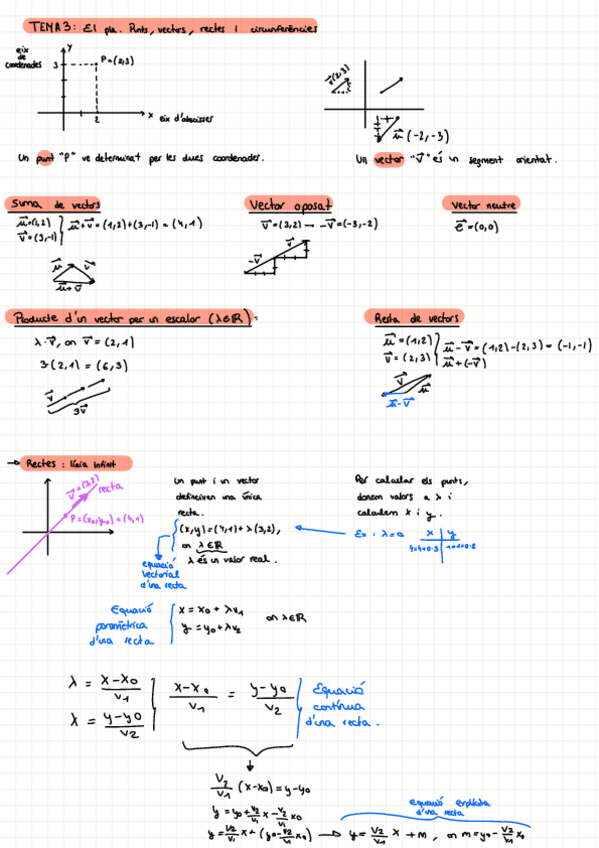 TEMA 3: El pla. Punts, vectors, rectes i circumferències
eix de coordenades
y
3
P=(2,3)
2
x
eix d'abscisses
v⃗(2,3)
u⃗(-2,-3)
Un punt "P" ve determinat per les dues coordenades.
Un vector "v⃗" és un segment orientat.
Suma de vectors
u⃗=(1,2)
v⃗=(3,-1)
u⃗+v⃗=(1,2)+(3,-1)=(4,1)
u⃗
v⃗
u⃗+v⃗
Vector oposat
v⃗=(3,2) → -v⃗=(-3,-2)
v⃗
-v⃗
Vector neutre
e⃗=(0,0)
Producte d'un vector per un escalar (λ∈ℝ).
λ·v⃗, on v⃗=(2,1)
3(2,1)=(6,3)
v⃗
3v⃗
Resta de vectors
u⃗=(1,2)
v⃗=(2,3)
u⃗-v⃗=(1,2)-(2,3)=(-1,-1)
u⃗+(-v⃗)
v⃗
u⃗
u⃗-v⃗
→ Rectes: línia infinit
v⃗=(3,2)
recta
P=(x₀,y₀)=(4,1)
Un punt i un vector
defineixen una única
recta.
(x,y)=(4,1)+λ(3,2),
on λ∈ℝ
λ és un valor real.
equació
vectorial
d'una recta
Per calcular els punts,
donem valors a λ i
calculem x i y.
Ex: λ=0
x y
4=4+0·3 1=1+0·2
Equació
paramètrica
d'una recta
x=x₀+λv₁
y=y₀+λv₂
on λ∈ℝ
λ = (x-x₀)/v₁
λ = (y-y₀)/v₂
(x-x₀)/v₁ = (y-y₀)/v₂
Equació
contínua
d'una recta.
v₂/v₁ (x-x₀)=y-y₀
y=y₀+v₂/v₁ x-v₂/v₁ x₀
Equació explícita
d'una recta
y=v₂/v₁ x+(y₀-v₂/v₁ x₀) → y=v₂/v₁ x+m, on m=y₀-v₂/v₁ x₀